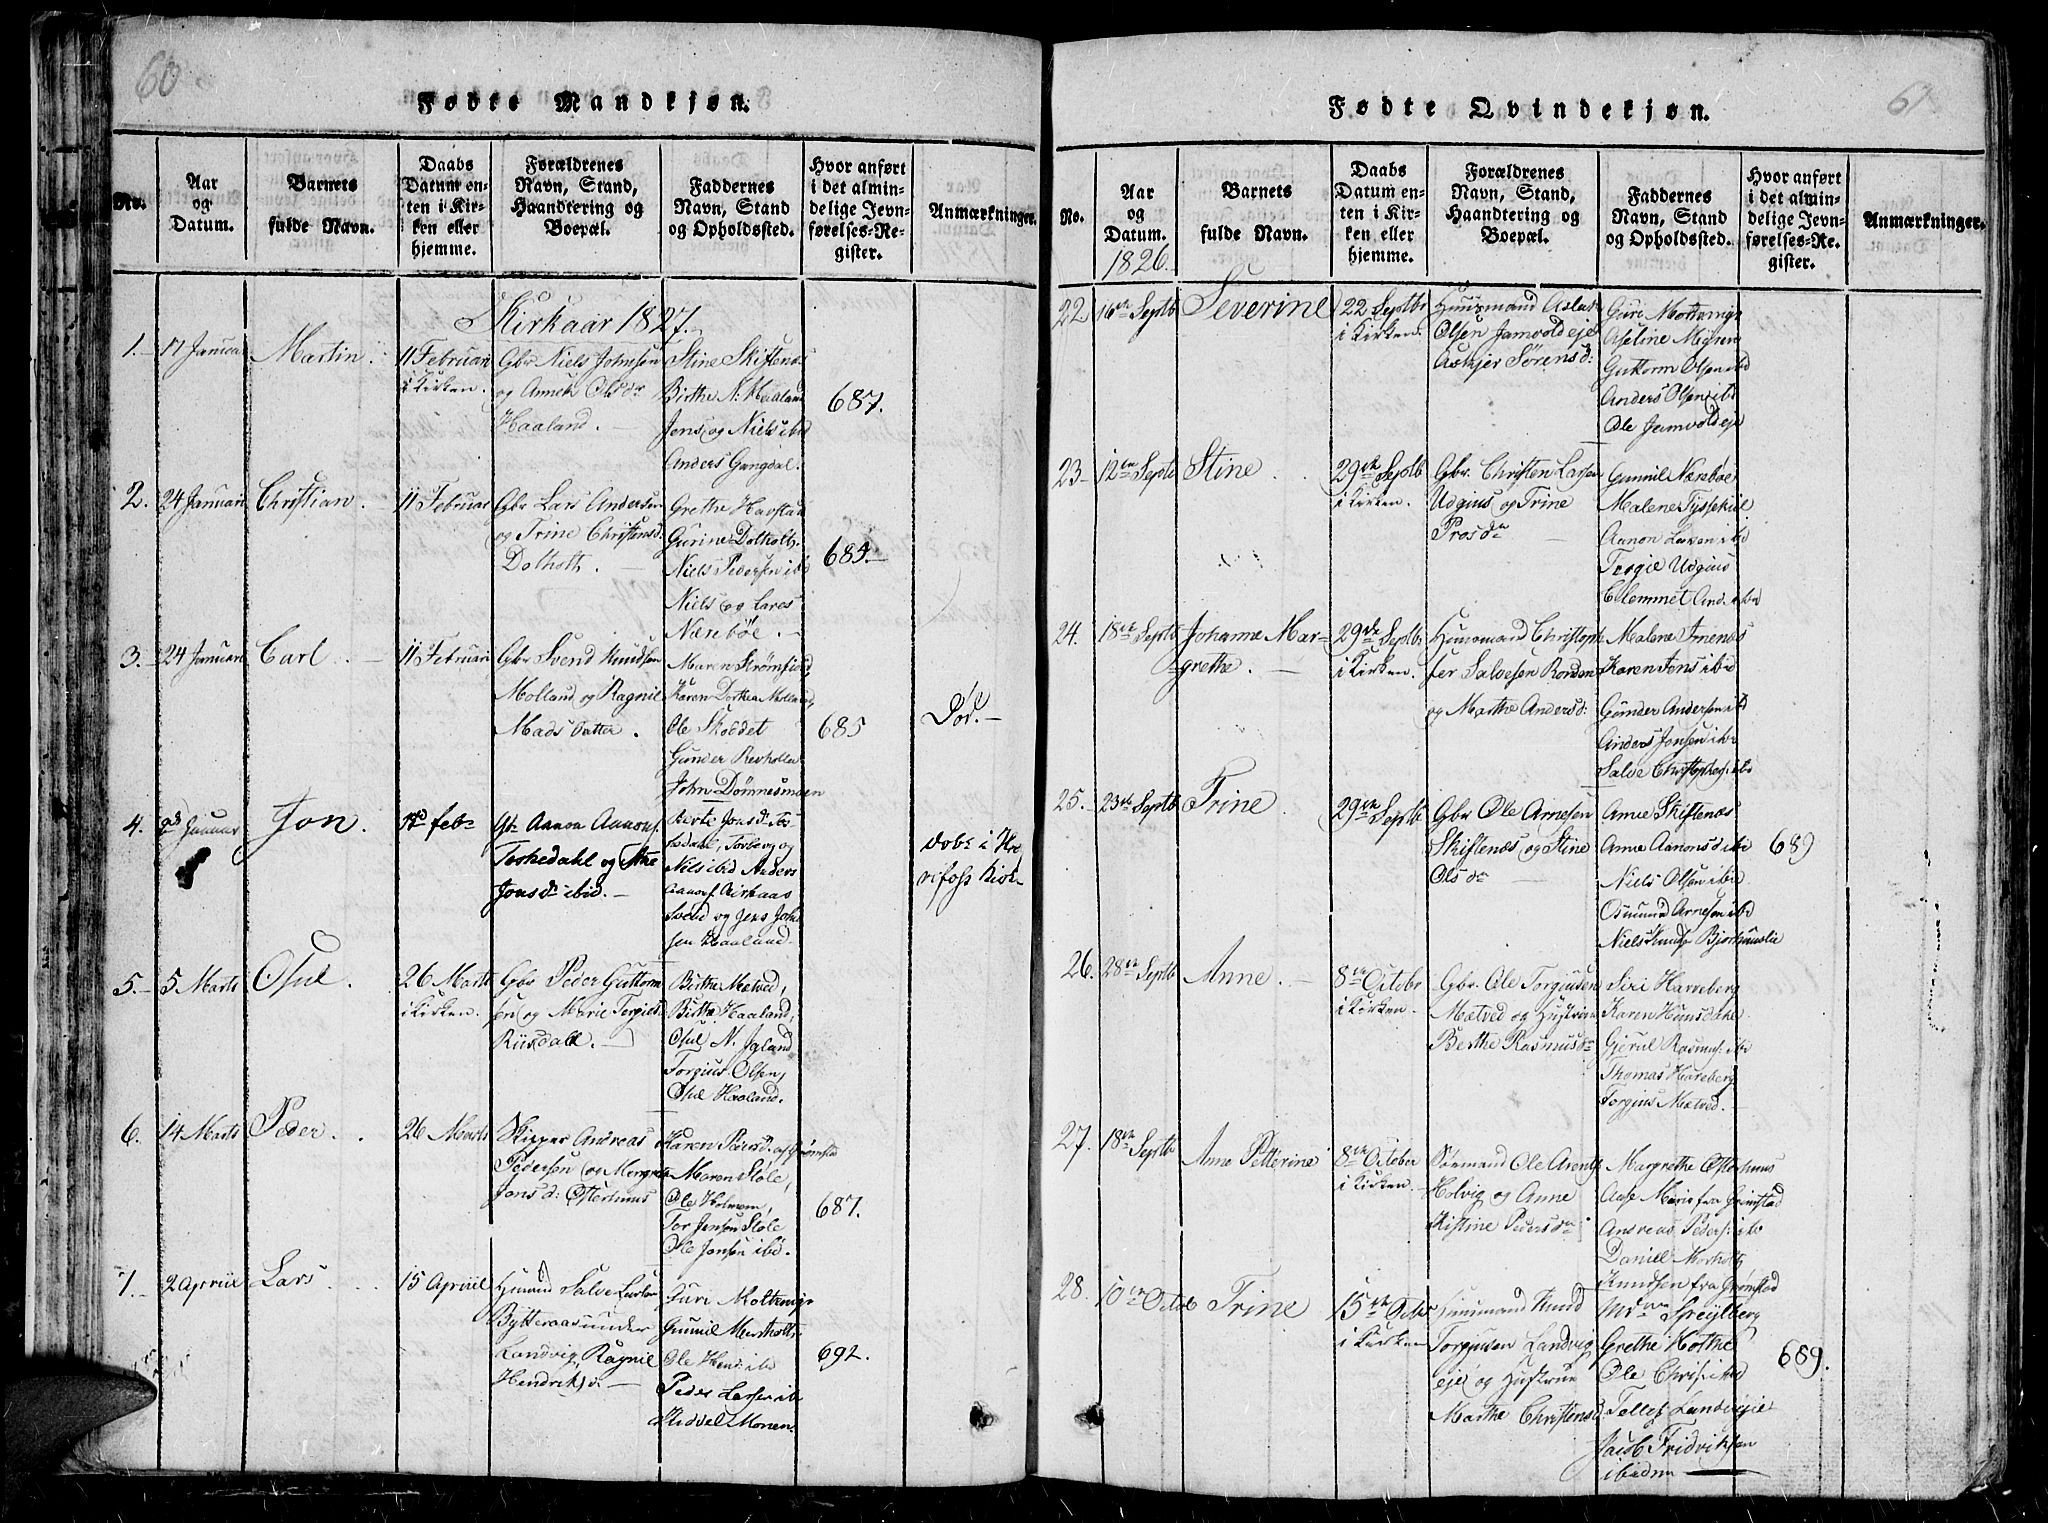 60
Fødte Mandkjøn.
No.
Aar
og
Datum.
Barnets
fulde Navn.
Daabs
Datum en-
ten i Kir-
ken eller
hjemme.
Forældrenes
Navn, Stand,
Haandtering og
Boepæl.
Faddernes
Navn, Stand
og Opholdssted.
Hvor anført
i det almin-
delige Jevn-
førelses-Re-
gister.
Anmærkninger.
Kirkaar 1827.
1.
17 Januar
Martin
11 Februari
i Kirken.
Gbr Niels Johnsen
og Anneth Olsdr
Haaland.
Stine Skiftenæs
Birthe N. Haaland
Jens og Niels ibd
Anders Gangdal.
687.
2.
24 Januari
Christian.
11 Februar
Gbr Lars Andersen
og Trine Christensd:
Dolholt.
Grethe Havstad
Gurine Dolholt
Niels Pedersen ibd
Niels og Lares
Nærebøe.
685.
3.
24 Januari
Carl
11 Februari
Gbr Svend Knudsen
Molland og Ragnil
Mads Datter.
Maren Strømfield,
Karen Dorthea Molland,
Ole Skoedet
Gunder Revholte
John Dømnesmoen
685
Død.
4.
Januar
Jon.
febr
Gbr Aanon Aanons.
Teskedahl og
Jonsdr ibid.
Berte Jonsd. Tes-
kedahl, Torberg og
Niels ibid Anders
Aanons. Birkaas
Svend og Jens John
sen Haaland.
døbt i He
refoss Kirk.
5.
5 Marts
Osul
26 Marts
i Kirken.
Gbr Peder Guttorm
sen og Marie Tergiesd:
Riisdall.
Birthe Mætved,
Birthe Haaland,
Osul N. Igland
Torgius Olsen,
Osul Haaland.
6.
14 Marts
Peder.
26 Marts
Skipper Andreas
Pedersen og Margrete
Jonsd: Osterhuus
Karen Peersd. af Grømstad
Maren Støle,
Ole Holmen,
Tor Jensen Støle
Ole Jonsen ibd.
687.
7.
2 Apriil
Lars
15 Apriil
Huusmd Salve Larsen
Bytteraas under
Landvig, Ragnil
Hendriksd.
Guri Moltemyr
Gunnil Morholt,
Ole Hend: ibd
Peder Larsen ib
Kidvel Monen.
692.
61
Fødte Qvindekjøn.
No.
Aar
og
Datum.
Barnets
fulde Navn.
Daabs
Datum en-
ten i Kir-
ken eller
hjemme.
Forældrenes
Navn, Stand,
Haandtering og
Boepæl.
Faddernes
Navn, Stand
og Opholdssted.
Hvor anført
i det almin-
delige Jevn-
førelses-Re-
gister.
Anmærkninger.
1826.
22
16de Septb
Severine
22 Septbr
i Kirken.
Huusmand Aslak
Olsen Jamvoldeje
Askjer Sørensd:
Guri Moltemyr
Aseline
Guttorm Olsen ibd
Anders Olsen ibd
Ole Jamvoldeje
23
12te Septb
Stine
29de Septb
i Kirken.
Gbr. Christen Larsen
Udgius og Trine
Prosdr
Gunnil Nærebøe
Malene Tyssekiil
Aanon Larsen ibd
Tergie Udgius
Clemmet And. ibd
24.
18de Septb
Johanne Mar-
grethe.
29de Septbr
i Kirken.
Huusmand Christoph
fer Salvesen Rønden
og Marthe Andersd:
Malene Imenæs
Karen Jons ibd
Gunder Andersen ibd
Anders Jonsen ibd
Salve Christophers. ibd
25.
23de Septb
Trine
29de Septb
Gbr Ole Arnesen
Skiftenæs og Stine
Olsdr
Anne Skiftenæs
Anne Aanonsd ibd
Niels Olsen ibd
Osmund Arnesen ibd
Niels Knuds Bjorhuuslie
689
26.
28de Septb
Anne.
8de Octobr
i Kirken.
Gbr. Ole Torgiusen
Mætved og Hustrue
Berthe Rasmusdr
Siri Harreberg
Karen Hunsdekke
Gjerul Rasmus. ibd
Thomas Harreberg
Torgius Mætved.
27.
18de Septb
Anne Petterine
8de October
i Kirken.
Sømand Ole Arents
Holvig og Anne
Kistine Pedersdr
Margrethe Osterhuus
Anne Marie fra Grimstad
Andreas Peders. ibd
Daniel Morholt
Knudsen fra Grømstad
28.
10de Octob
Trine
15de Octbr
i Kirken
Huusmand Knud
Torgiusen Landvig
eje og Hustrue
Marthe Christensd
Mdme Spejlberg
Grethe Holthe
Ole Chris. ibd
Tellef Landvigeie
Jacob Fridriksen
ibidem
689.